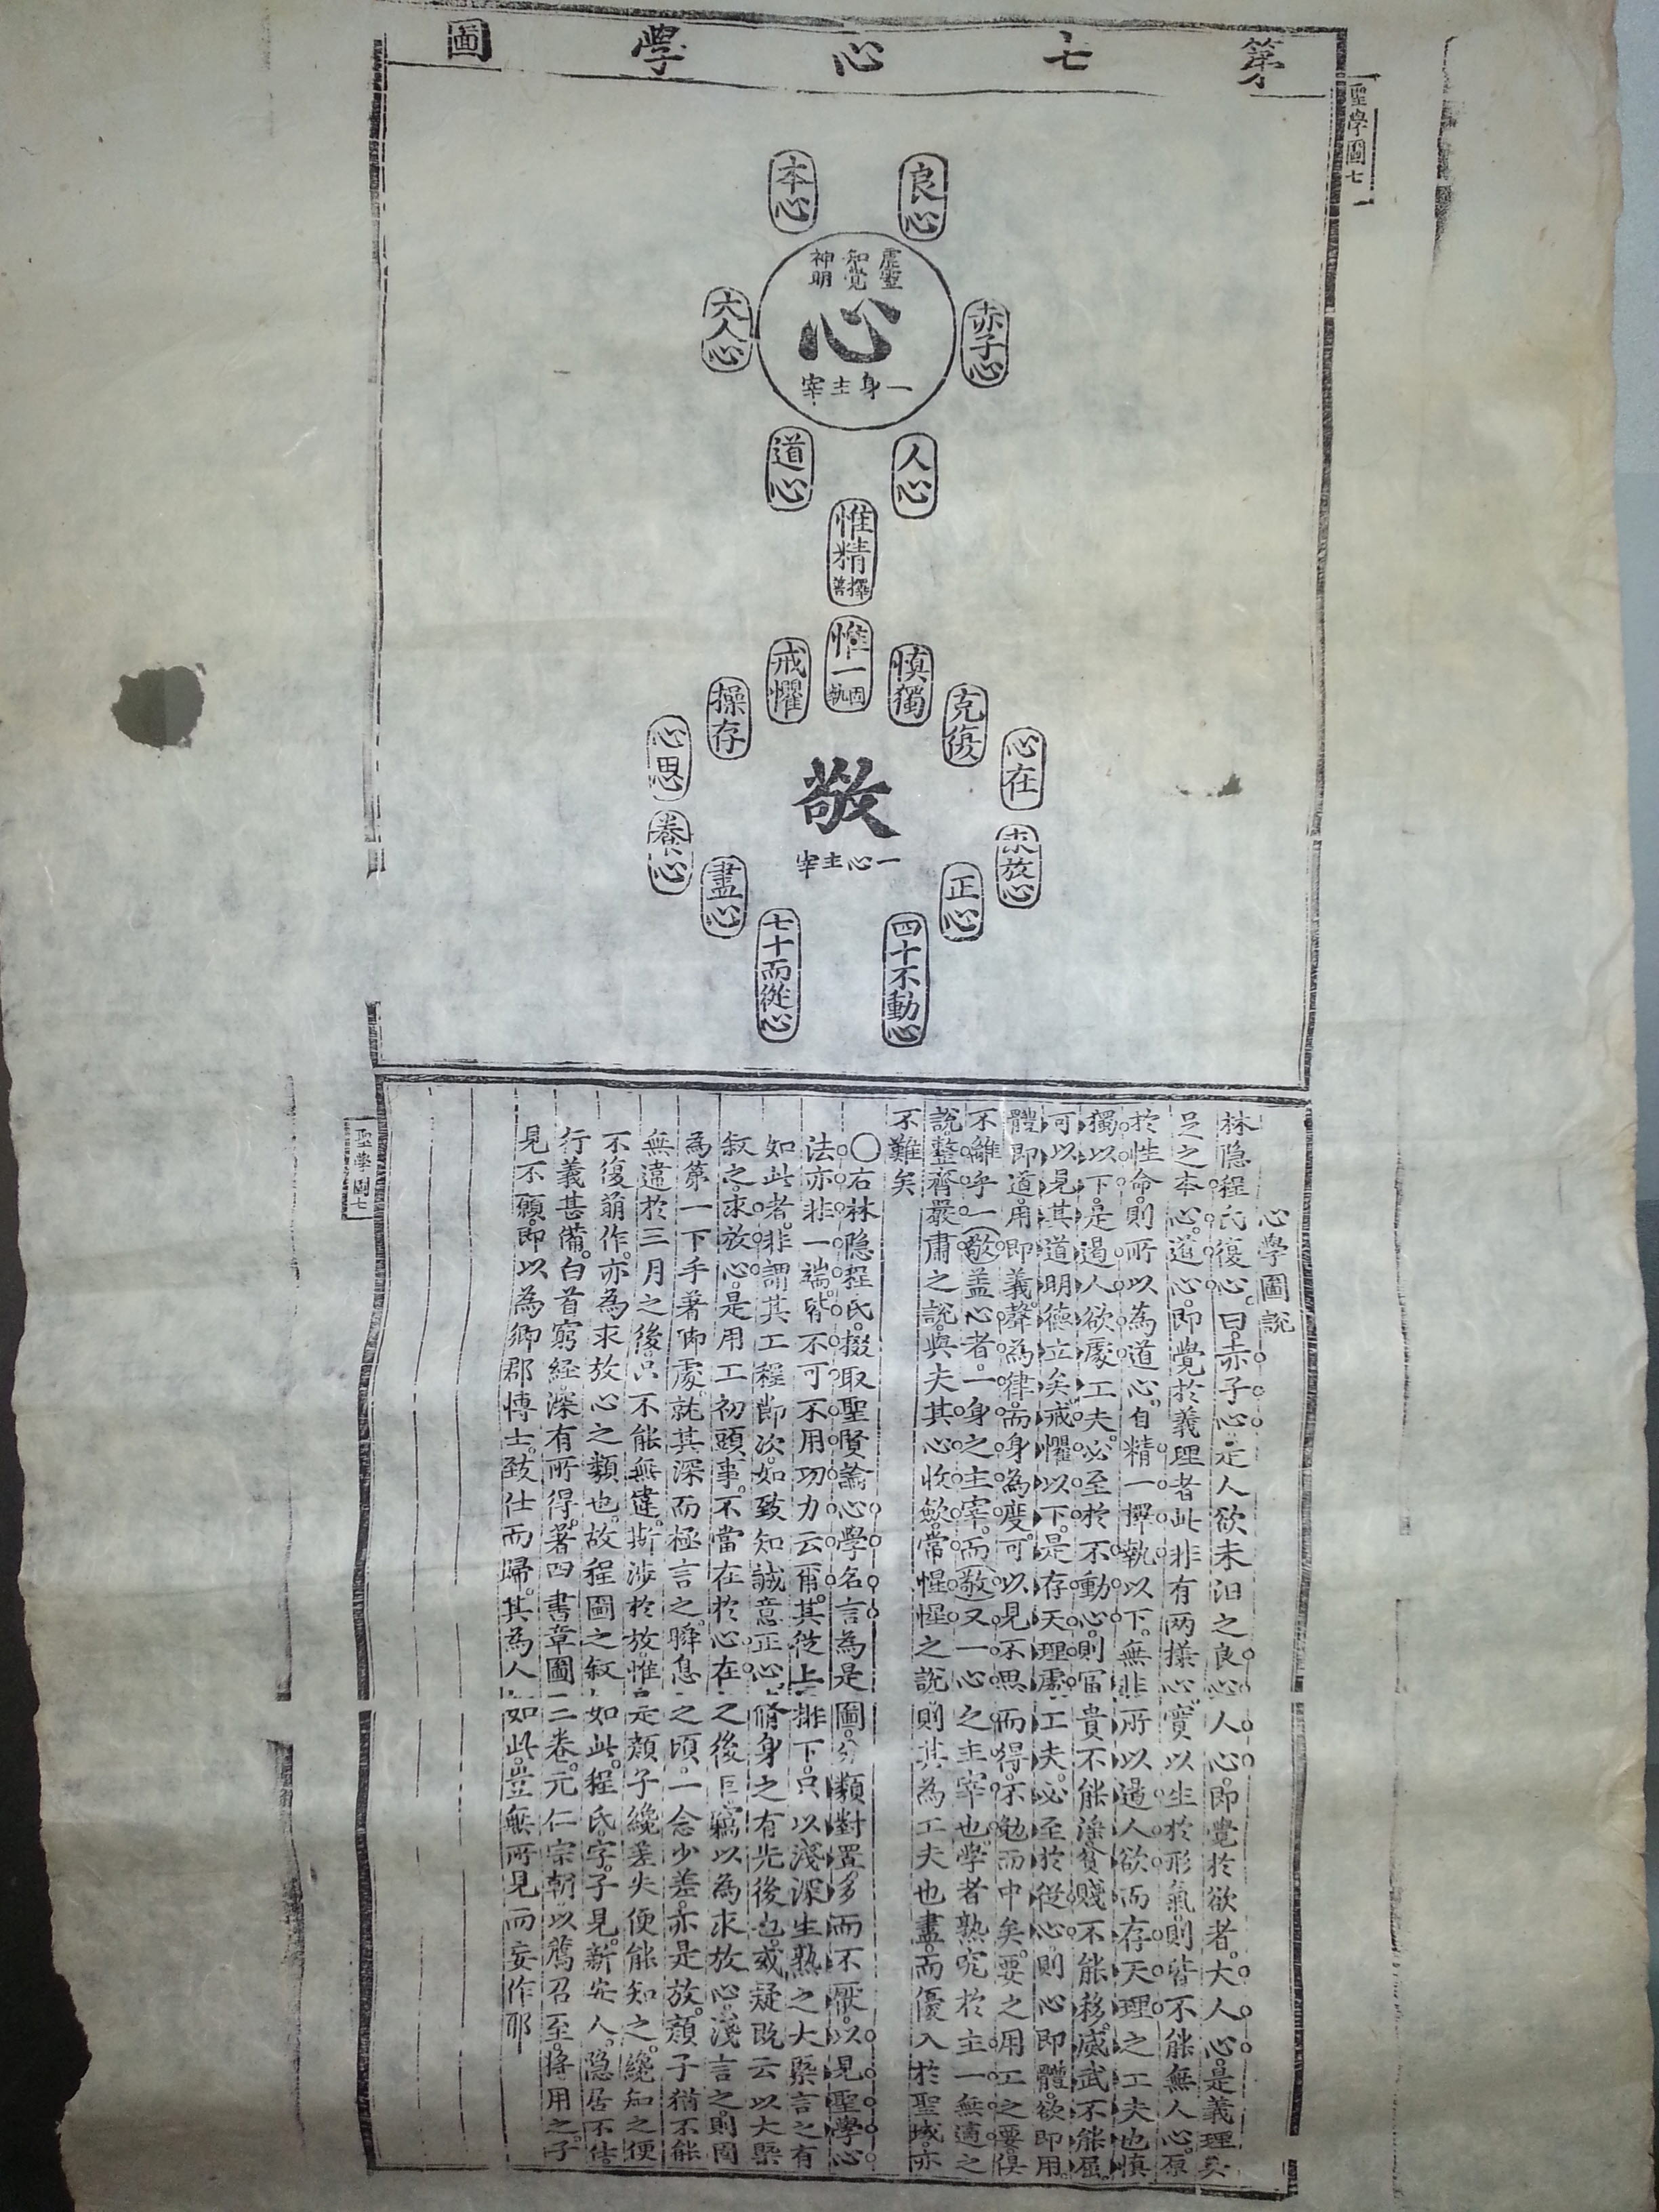 第七心學圖
聖學圖七
良心
本心
虛靈
知覺
神明
心
一身主宰
赤子心
大人心
人心
道心
惟精
擇善
惟一
固執
慎獨
戒懼
克復
操存
心在
心思
敬
一心主宰
求放心
養心
正心
盡心
四十不動心
七十而從心
心學圖說
林隐程氏復心曰赤子心是人欲未汩之良心人心即覺於欲者大人心是義理具
足之本心道心即覺於義理者此非有两樣心實以生於形氣則皆不能無人心原
於性命則所以為道心自精一擇執以下無非所以遏人欲而存天理之工夫也慎
獨以下是遏人欲處工夫必至於不動心則冨貴不能淫貧賤不能移威武不能屈
可以見其道明德立矣戒懼以下是存天理處工夫必至於從心則心即體欲即用
體即道用即義聲為律而身為度可以見不思而得不勉而中矣要之用工之要俱
不離乎一敬盖心者一身之主宰而敬又一心之主宰也學者熟究於主一無適之
說整齊嚴肅之說與夫其心收斂常惺惺之說則其為工夫也盡而優入於聖域亦
不難矣
〇右林隐程氏掇取聖賢論心學名言為是圖分類對置多而不厭以見聖學心
法亦非一端皆不可不用功力云爾其從上排下只以淺深生熟之大槩言之有
如此者非謂其工程節次如致知誠意正心脩身之有先後也或疑既云以大槩
叙之求放心是用工初頭事不當在於心在之後臣竊以為求放心淺言之則固
為第一下手著脚處就其深而極言之瞬息之頃一念少差亦是放顏子猶不能
無違於三月之後只不能無違斯涉於放惟是顏子纔差失便能知之纔知之便
不復萌作亦為求放心之類也故程圖之叙如此程氏字子見新安人隐居不仕
行義甚備白首窮經深有所得著四書章圖三卷元仁宗朝以薦召至將用之子
見不願即以為鄉郡博士致仕而歸其為人如此豈無所見而妄作耶
聖學圖七